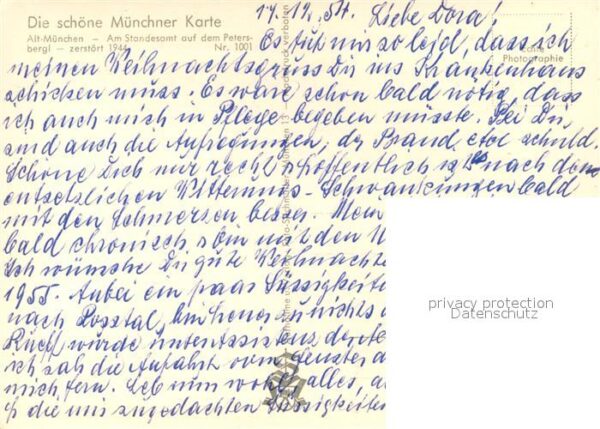 Die schöne Münchner Karte
Alt-München — Am Standesamt auf dem Peters-
bergl — zerstört 1944 Nr. 1001
Echte
Photographie
17. 12. 54. Liebe Dora!
Es tut mir so leid, dass ich
meinen Weihnachtsgruss Dir ins Krankenhaus
schicken muss. Es wäre schon bald nötig, dass
ich auch mich in Pflege begeben müsste. Bei Dir
sind auch die Aufregungen, der Brand, etc schuld.
Schone Dich nur recht & hoffentlich ist's nach den
entsetzlichen Witterungs-Schwankungen bald
mit den Schmerzen besser. Mein
bald chronisch & bin mit den
Ich wünsche Dir gute Weihnachten
1955. Anbei ein paar Süssigkeiten
nach
würde unter Assistenz
ich sah die Auffahrt vom Fenster
mich fern. Leb nun wohl, alles,
die mir zugedachten Süssigkeiten
privacy protection
Datenschutz